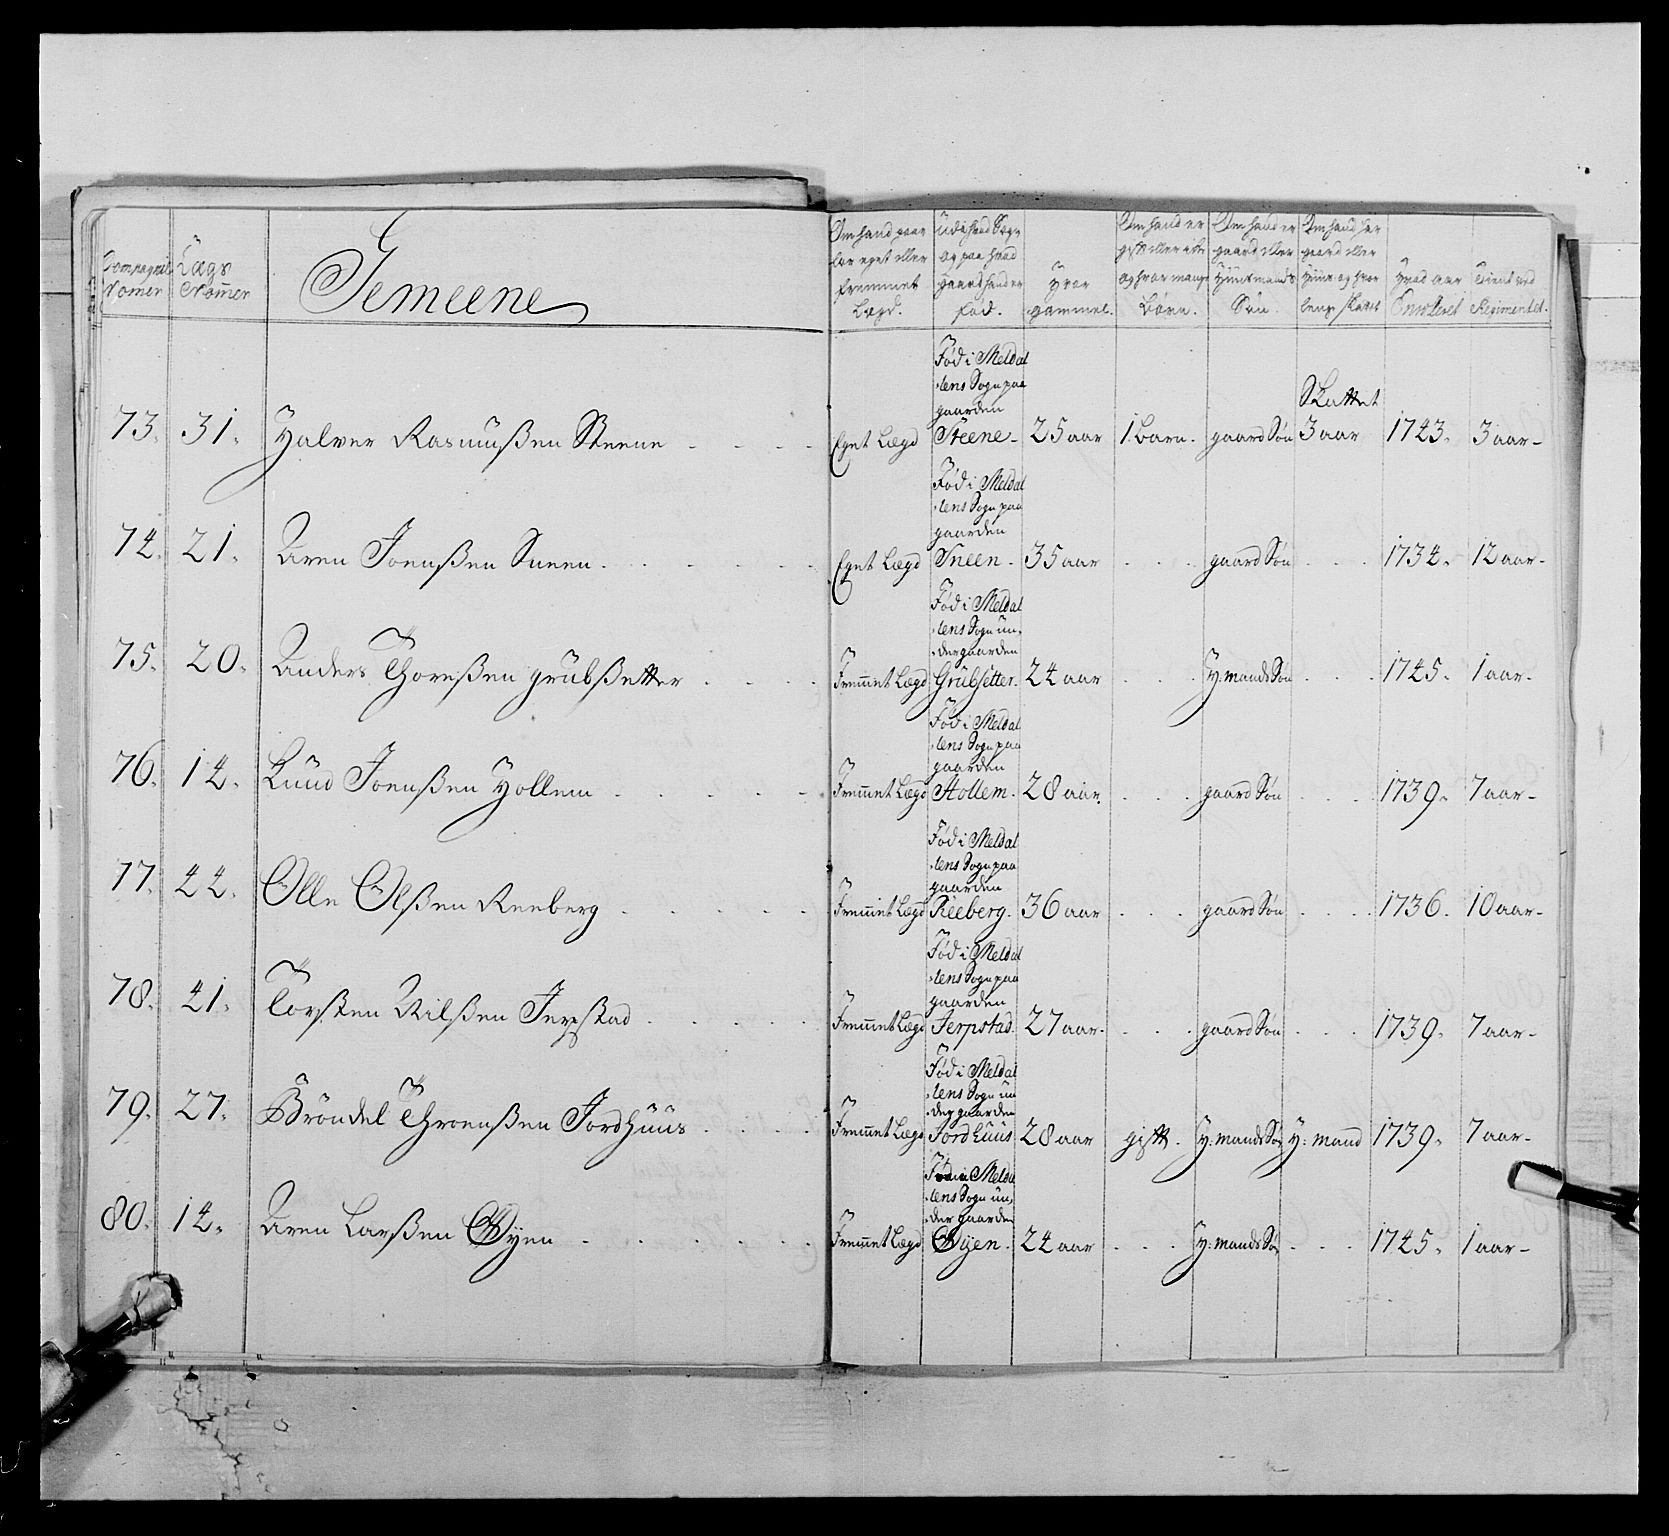 Compagnie Nomer
Lægs Nomer
Gemeene
Om hand staar for eget eller fremmet Lægd.
Udi hvad Sogn og paa hvad Gaard hand er fød.
Hvor gammel.
Om hand er gift eller ikke og hvor mange Børn.
Om hand er gaard eller Huusmands Søn.
Om hand har gaard eller Huus og hvor lenge skattet
Hvad aar Enrolleret
Tient ved Regimentet.
73. 31. Halver Rasmusßen Steene - - - - Eget Lægd Fød i Meldalens Sogn paa gaarden Steene - 25 aar 1. Barn. gaard Søn Skattet 3 aar 1743. 3 aar -
74. 21. Aren Joenßen Sneen . . . . Eget Lægd Fød i Meldalens Sogn paa gaarden Sneen - 35 aar . . . gaard Søn . . . 1734. 12 aar -
75. 20. Anders Thoreßen grübßetter . . . . Fremmet Lægd Fød i Meldalens Sogn under gaarden Grübsetter. 24 aar . . . H: mands Søn . . . 1745. 1 aar -
76. 14. Knud Joenßen Hollem . . . . Fremmet Lægd Fød i Meldalens Sogn paa gaarden Hollem. 28 aar. . . . gaard Søn . . . 1739. 7 aar -
77. 44. Olle Olßen Reeberg . . . . Fremmet Lægd Fød i Meldalens Sogn paa gaarden Reeberg. 36 aar . . . gaard Søn . . . 1736. 10 aar -
78. 41. Torsten Nilßen Jerpstad . . . . Fremmet Lægd Fød i Meldalens Sogn paa gaarden Jerpstad. 27 aar. . . . gaard Søn . . . 1739. 7 aar -
79. 27. Brøndel Throenßen Jordhüüs . . . . Fremmet Lægd Fød i Meldalens Sogn under gaarden Jordhüüs 28 aar gift. H: mands Søn H: mand 1739. 7 aar -
80. 14. Aren Larßen Øyen . . . . Fremmet Lægd Fød i Meldalens Sogn under gaarden Øyen. 24 aar . . . H: mands Søn . . . 1745. 1 aar -